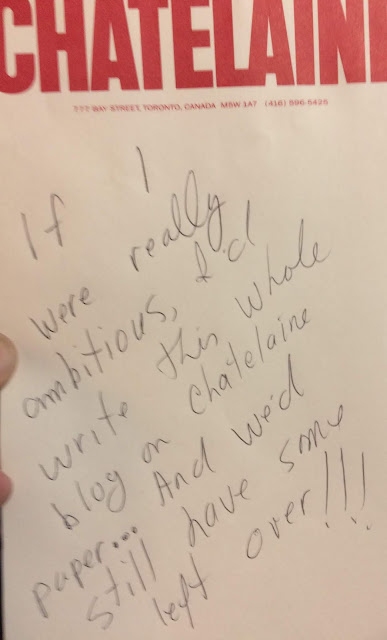 CHATELAINE
777 BAY STREET, TORONTO, CANADA M5W 1A7 (416) 596-5425
If I
were really
ambitious, I'd
write this whole
blog on Chatelaine
paper... And we'd
still have some
left over!!!